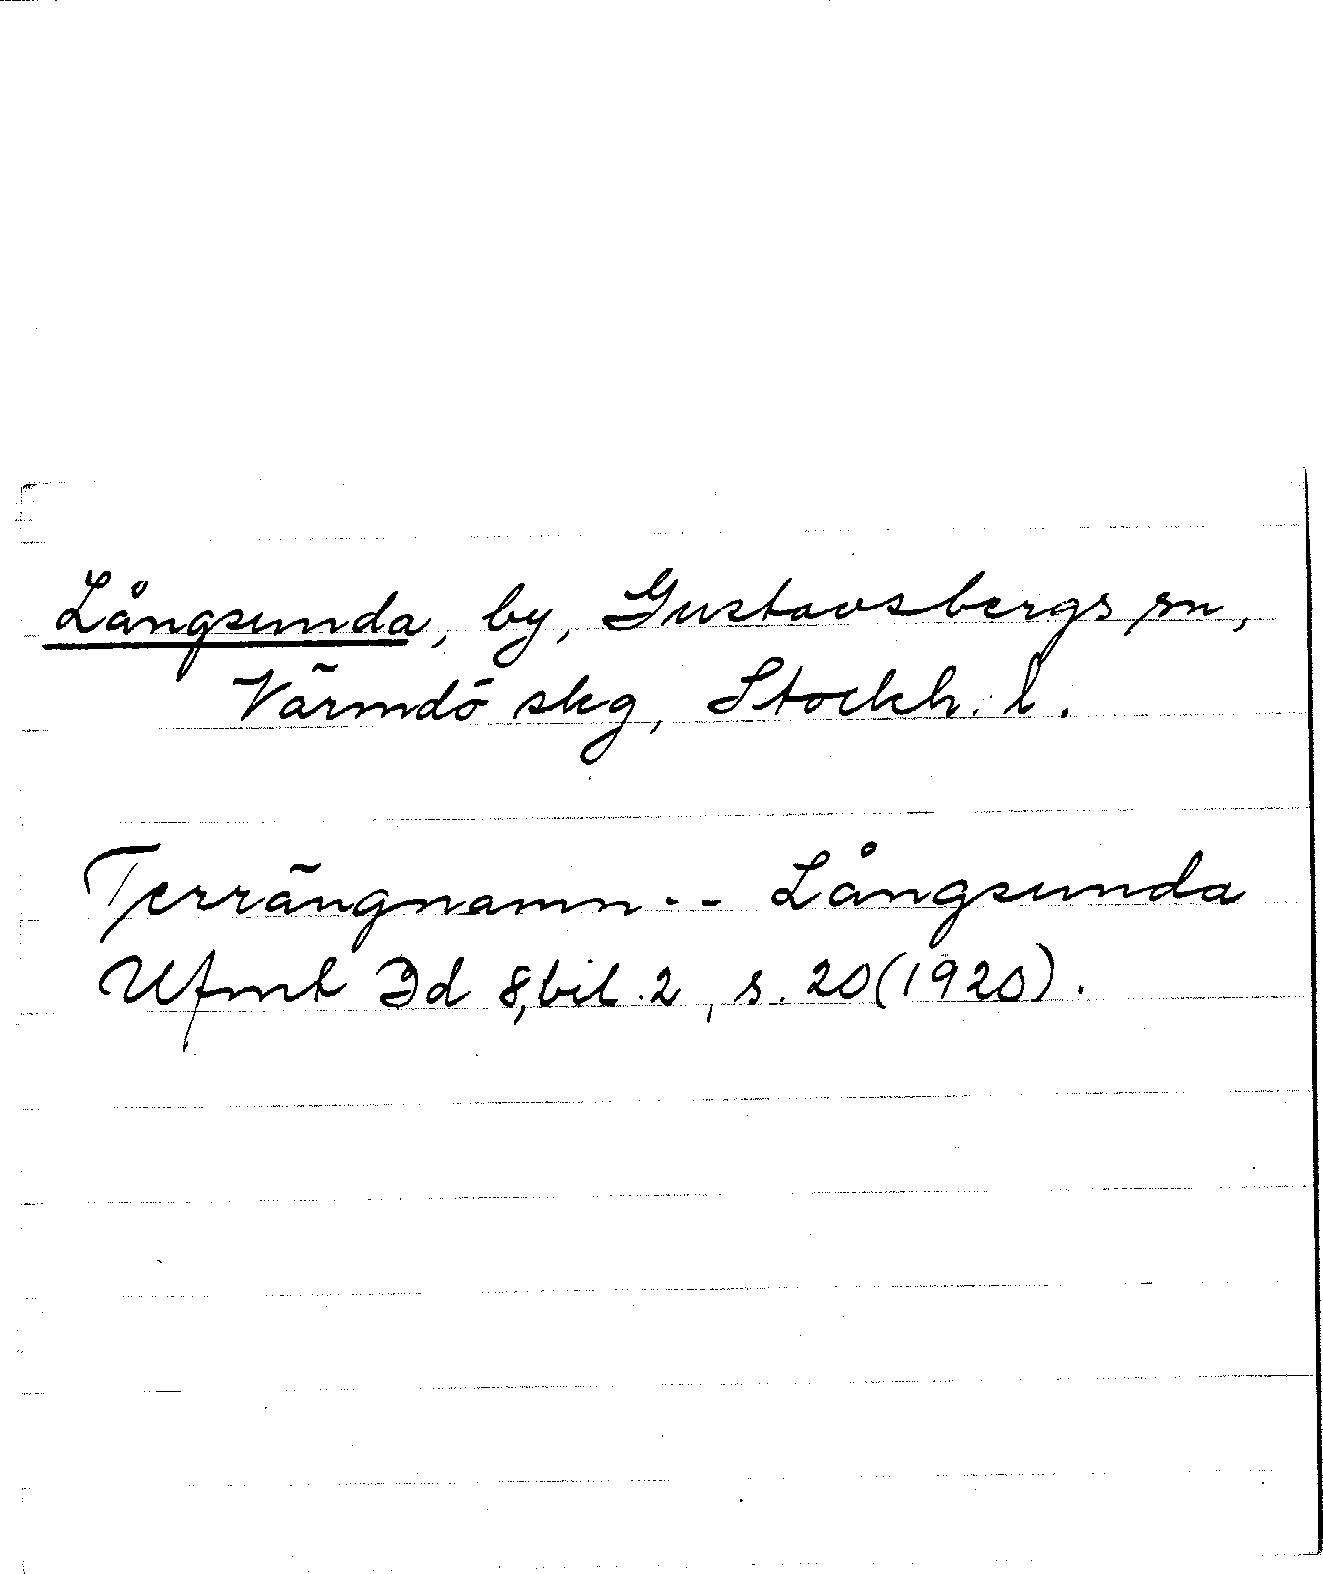 Långsunda, by, Gustavsbergs sn,
Värmdö skg, Stockh. l.
Terrängnamn -- Långsunda
Ufmt Dd 8, bil. 2, s. 20 (1920).